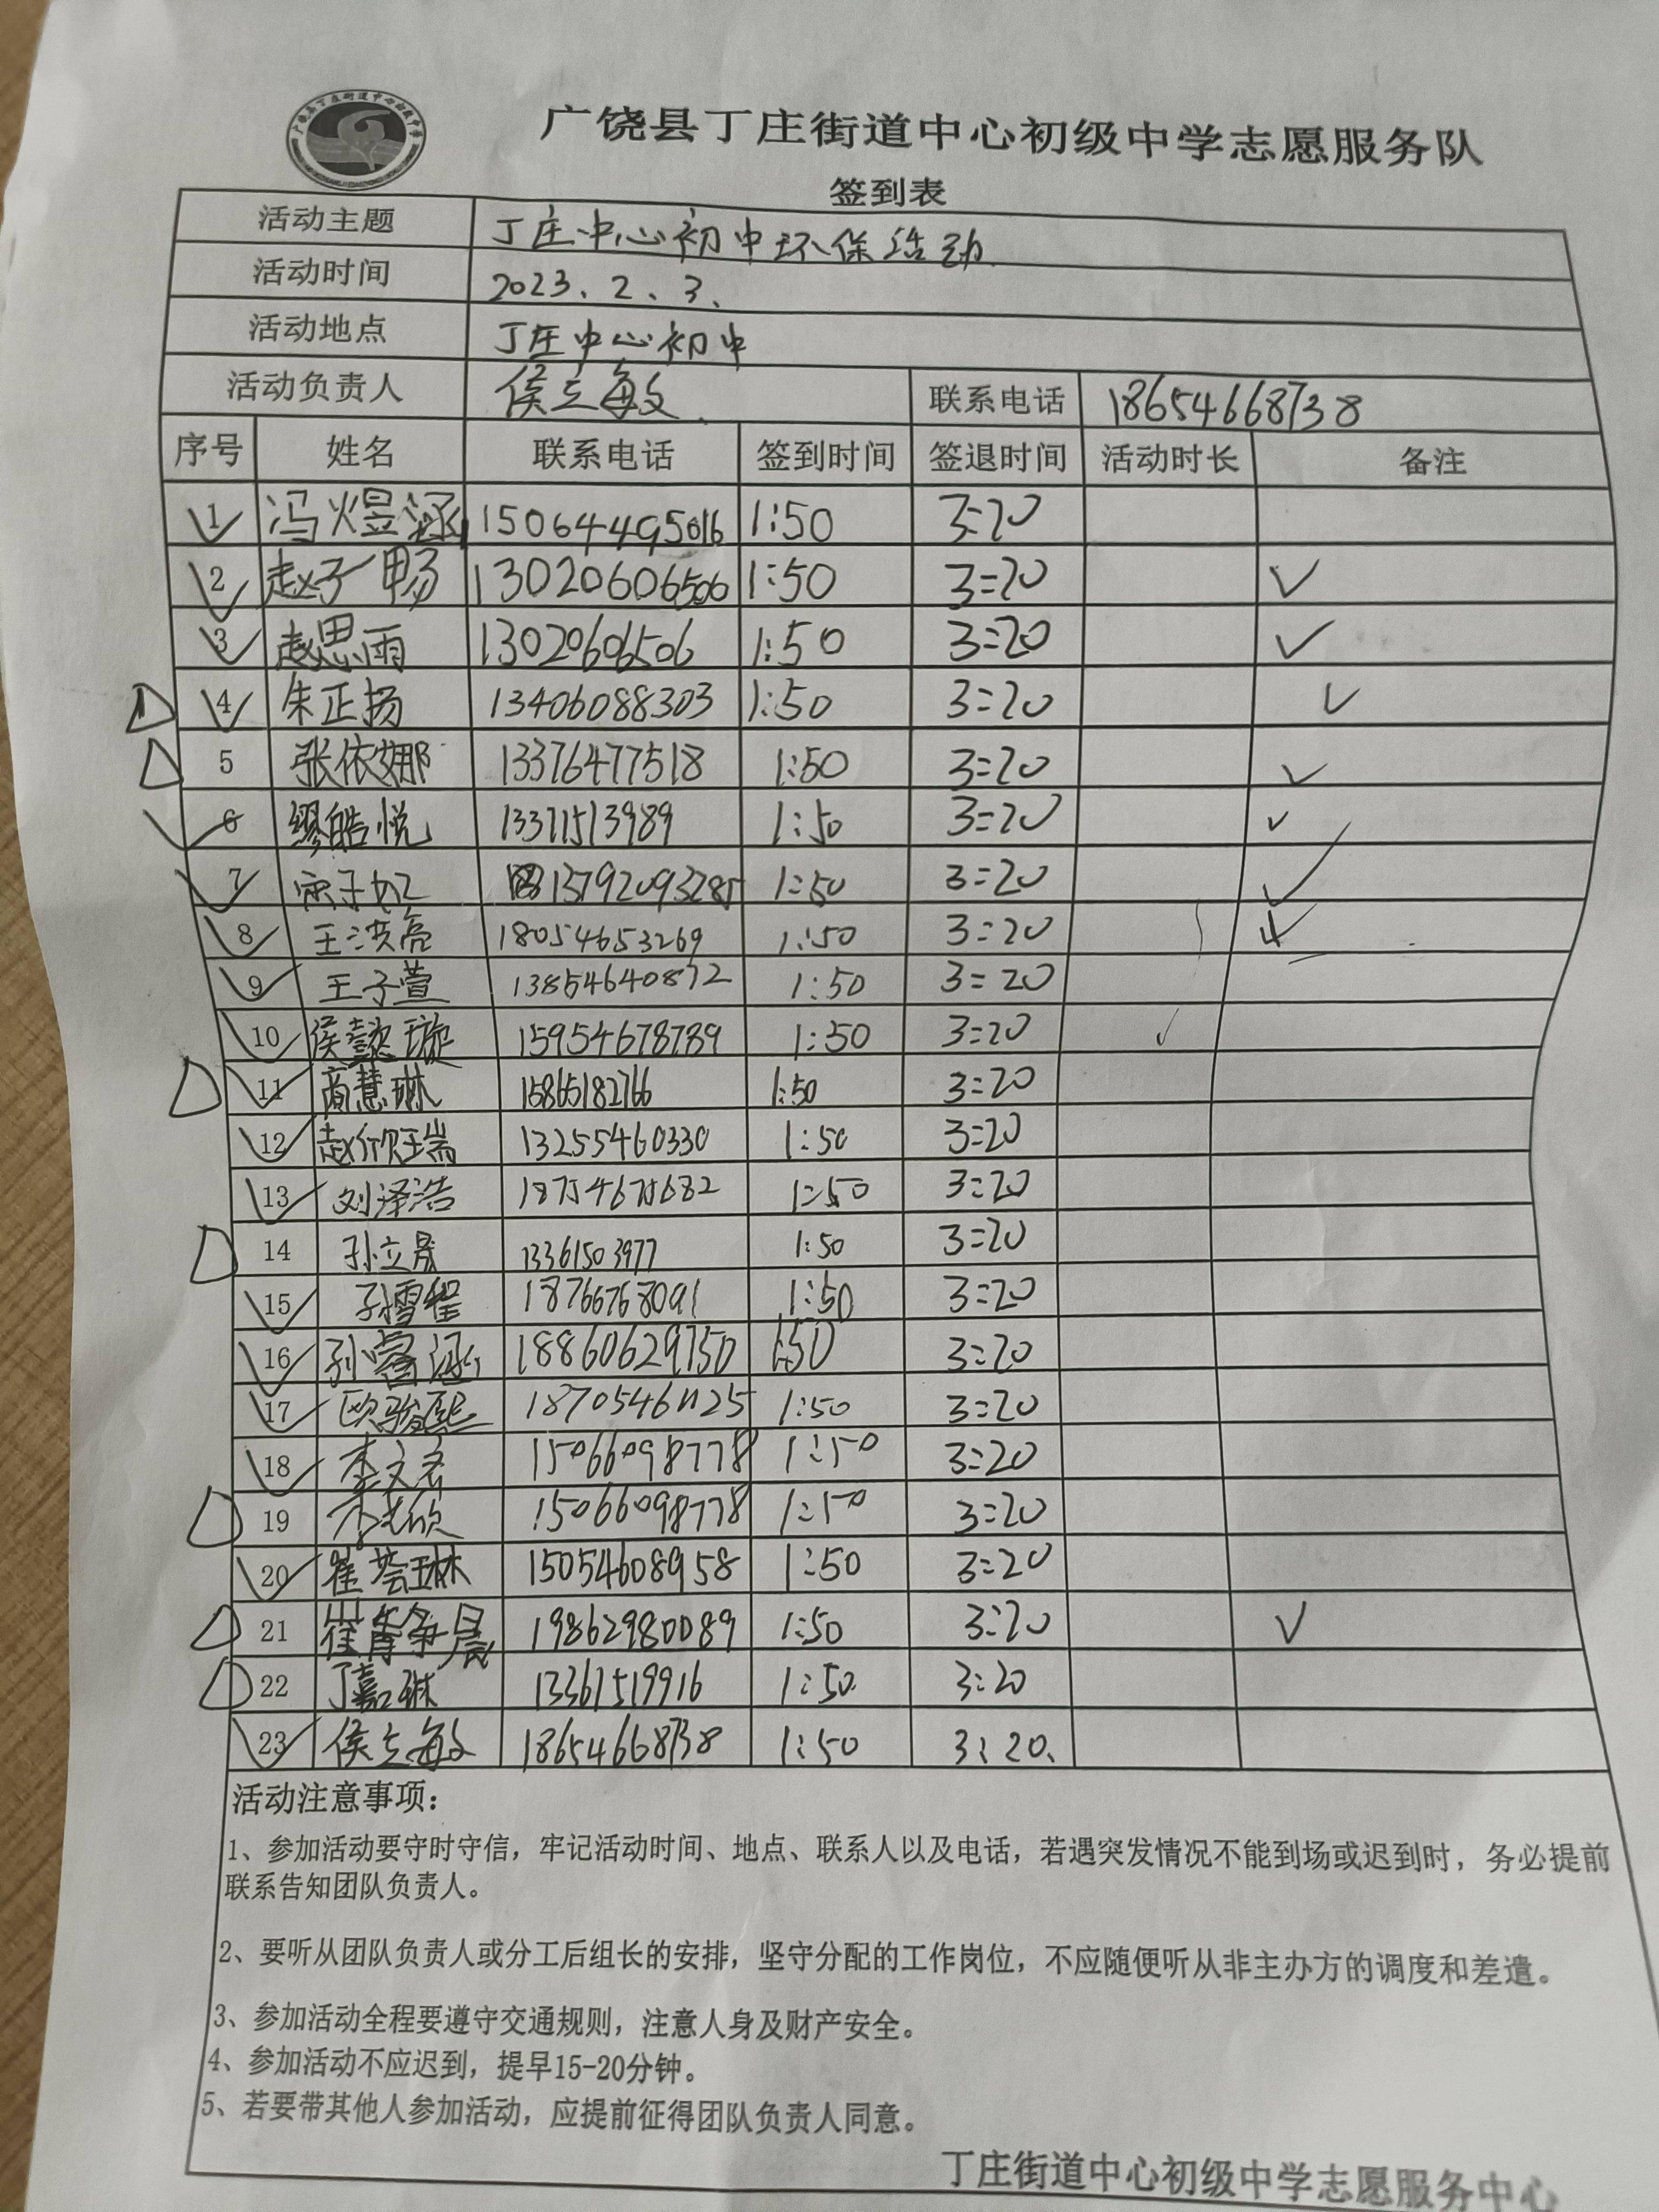 广饶县丁庄街道中心初级中学志愿服务队
签到表
活动主题 丁庄中心初中环保活动
活动时间 2023.2.3.
活动地点 丁庄中心初中
活动负责人 侯立敏 联系电话 18654668738
序号 姓名 联系电话 签到时间 签退时间 活动时长 备注
1 冯煜涵 15064495016 1:50 3:20
2 赵子畅 13020606506 1:50 3:20 ✓
3 赵思雨 13020606506 1:50 3:20 ✓
4 朱正扬 13406088303 1:50 3:20 ✓
5 张依娜 13376477518 1:50 3:20 ✓
6 缪皓悦 13371513989 1:50 3:20 ✓
7 13792093285 1:50 3:20 ✓
8 王洪亮 18054653269 1:50 3:20 ✓
9 王子萱 13854640872 1:50 3:20
10 侯懿璇 15954678789 1:50 3:20 ✓
11 商慧琳 15865182766 1:50 3:20
12 赵欣瑞 13255460330 1:50 3:20
13 刘泽浩 18754675682 1:50 3:20
14 孙立晟 13361503977 1:50 3:20
15 孙雪程 18766768091 1:50 3:20
16 孙睿涵 18860629750 1:50 3:20
17 欧骏熙 18705461125 1:50 3:20
18 李文君 15066098778 1:50 3:20
19 15066098778 1:50 3:20
20 崔荟琳 15054608958 1:50 3:20
21 崔 19862980089 1:50 3:20 ✓
22 丁嘉琳 13361519916 1:50 3:20
23 侯立敏 18654668738 1:50 3:20
活动注意事项：
1、参加活动要守时守信，牢记活动时间、地点、联系人以及电话，若遇突发情况不能到场或迟到时，务必提前
联系告知团队负责人。
2、要听从团队负责人或分工后组长的安排，坚守分配的工作岗位，不应随便听从非主办方的调度和差遣。
3、参加活动全程要遵守交通规则，注意人身及财产安全。
4、参加活动不应迟到，提早15-20分钟。
5、若要带其他人参加活动，应提前征得团队负责人同意。
丁庄街道中心初级中学志愿服务中心